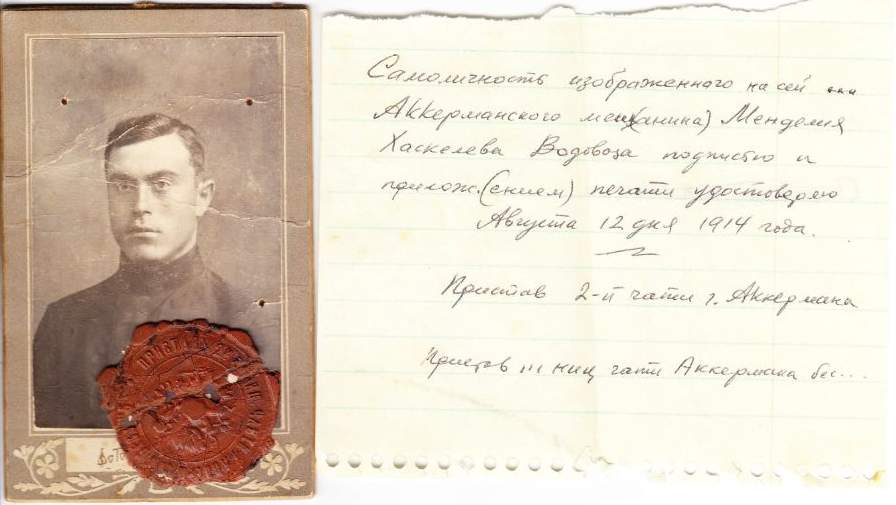 ПРИСТАВЪ 2
Самоличность изображенного на сей ...
Аккерманского мещ(анина) Менделя
Хаскелева Водовоза подписью и
прилож.(ением) печати удостоверяю
Августа 12 дня 1914 года.
Пристав 2-й части г. Аккермана
Пристав части Аккермана бес...